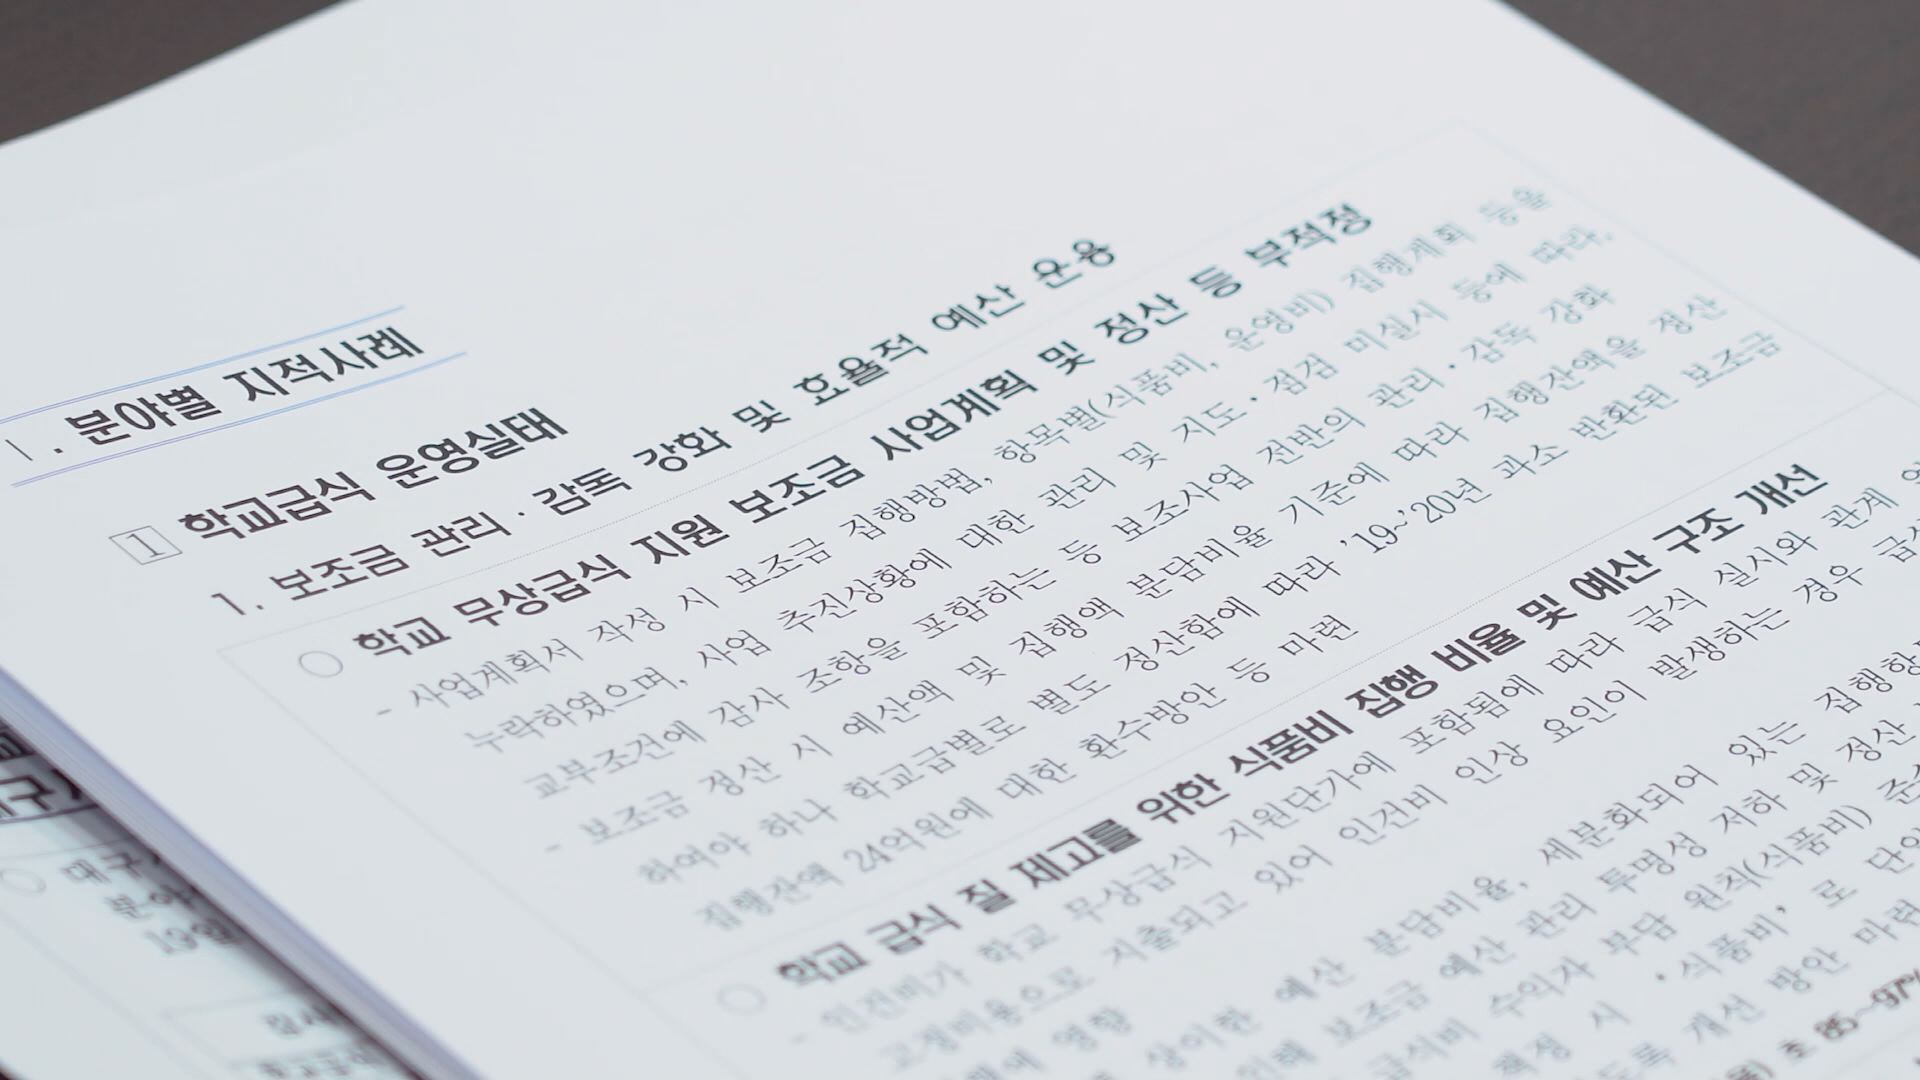 Ⅰ. 분야별 지적사례
1 학교급식 운영실태
1. 보조금 관리·감독 강화 및 효율적 예산 운용
○ 학교 무상급식 지원 보조금 사업계획 및 정산 등 부적정
- 사업계획서 작성 시 보조금 집행방법, 항목별(식품비, 운영비) 집행계획 등을
누락하였으며, 사업 추진상황에 대한 관리 및 지도·점검 미실시 등에 따라,
교부조건에 감사 조항을 포함하는 등 보조사업 전반의 관리·감독 강화
- 보조금 정산 시 예산액 및 집행액 분담비율 기준에 따라 집행잔액을 정산
하여야 하나 학교급별로 별도 정산함에 따라 '19~'20년 과소 반환된 보조금
집행잔액 24억원에 대한 환수방안 등 마련
○ 학교 급식 질 제고를 위한 식품비 집행 비율 및 예산 구조 개선
- 인건비가 학교 무상급식 지원단가에 포함됨에 따라 급식 실시와 관계
고정비용으로 지출되고 있어 인건비 인상 요인이 발생하는 경우
영향
상이한 예산 분담비율, 세분화되어 있는
보조금 예산 관리 투명성 저하 및 정산
급식비 수익자 부담 원칙(식품비)
책정 시 '식품비'로
개선 방안 마련
85~97%
대구
분야
19일